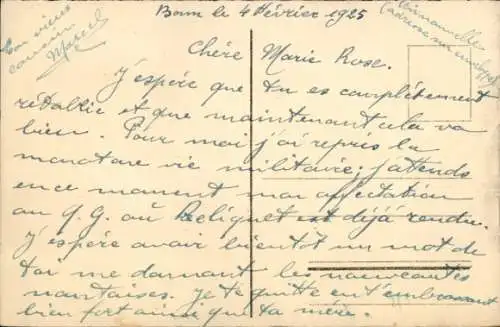 Bonn le 4 Février 1925
Ton vieux
cousin
Marcel
Chère Marie Rose.
J'espère que tu es complètement
rétablie et que maintenant cela va
bien. Pour moi j'ai repris la
monotone vie militaire; j'attends
en ce moment mon affectation
au Q.G. où Deliquet est déjà rendu.
J'espère avoir bientôt un mot de
toi me donnant les nouveautés
nantaises. Je te quitte en t'embrassant
bien fort ainsi que ta mère.